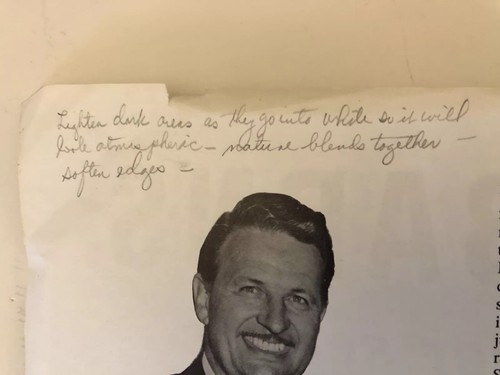 Lighten dark areas as they go into white so it will
look atmospheric – nature blends together –
soften edges –